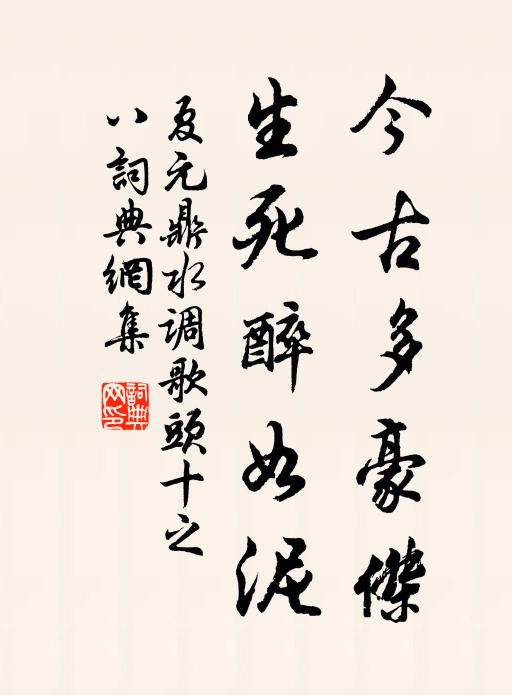 今古多豪傑
生死醉如泥
夏元鼎水调歌頭十之
八詞典網集
詞典網印